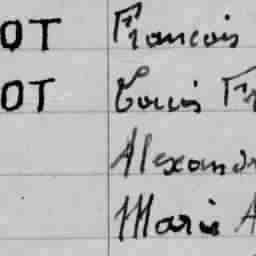 OT François
OT Louis Fr
Alexandr
Marie A